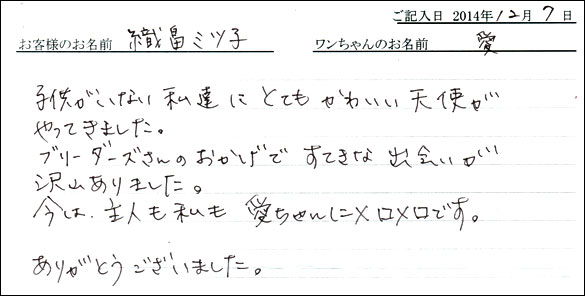 ご記入日 2014年12月7日
お客様のお名前 織畠ミツ子 ワンちゃんのお名前 愛
子供がいない私達にとてもかわいい天使が
やってきました。
ブリーダーズさんのおかげですてきな出会いが
沢山ありました。
今は、主人も私も愛ちゃんにメロメロです。
ありがとうございました。